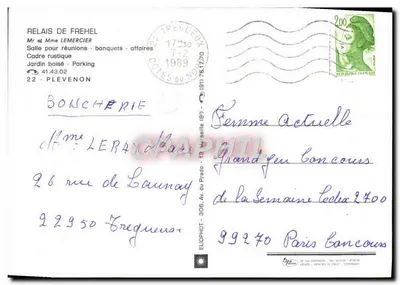 RELAIS DE FREHEL
Mr et Mme LEMERCIER
Salle pour réunions - banquets - affaires
Cadre rustique
Jardin boisé - Parking
41.43.02
22 - PLÉVENON
22 TREGUEUX
17H30
7-2
1989
CÔTES DU NORD
2,00
BOUCHERIE
Mme
26 rue de Launay
22950 Tregueux
ELIOPHOT - 305, Av. du Prado - 13 Marseille (8e)
(91) 76.17.70
Femme Actuelle
Grand Jeu Concours
de la Semaine Cedex 2700
99270 Paris Concours